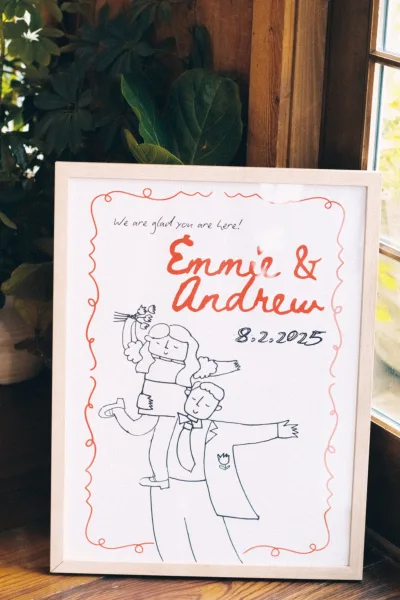 We are glad you are here!
Emmie &
Andrew
8.2.2025